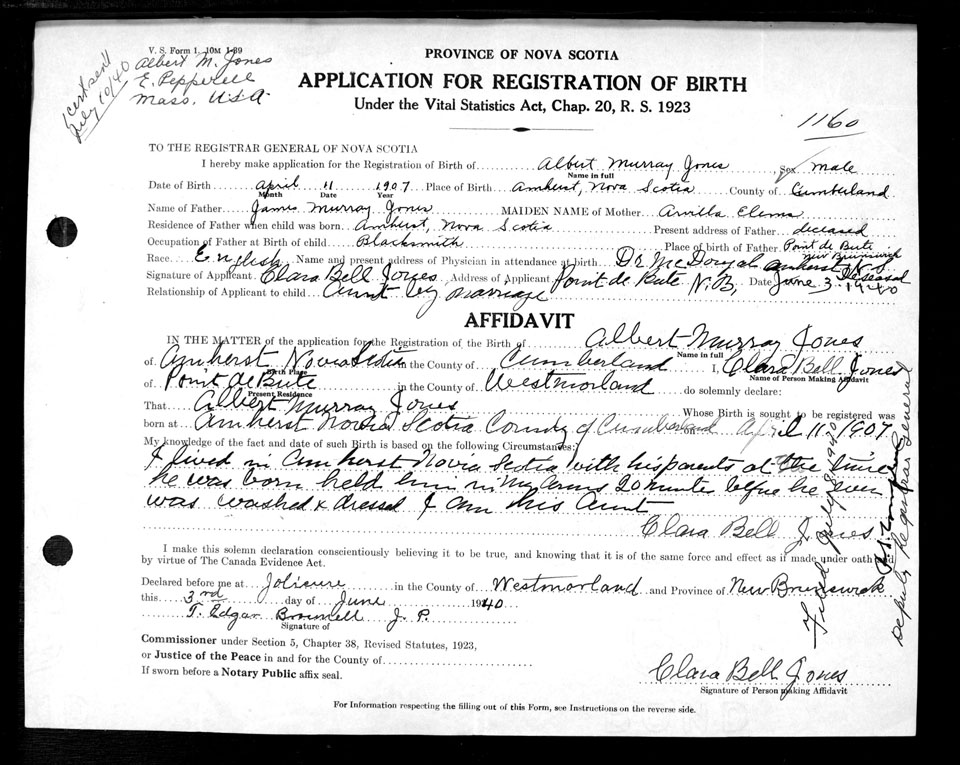 V. S. Form 1. 10M 1-39
Albert M. Jones
E. Pepperell
Mass. U.S.A.
cert sent
July 10/40
PROVINCE OF NOVA SCOTIA
APPLICATION FOR REGISTRATION OF BIRTH
Under the Vital Statistics Act, Chap. 20, R. S. 1923
1160
TO THE REGISTRAR GENERAL OF NOVA SCOTIA
I hereby make application for the Registration of Birth of Albert Murray Jones Sex male
Name in full
Date of Birth April 11 1907 Place of Birth Amherst, Nova Scotia County of Cumberland
Month Date Year
Name of Father James Murray Jones MAIDEN NAME of Mother Arvilla Elems
Residence of Father when child was born Amherst, Nova Scotia Present address of Father deceased
Occupation of Father at Birth of child Blacksmith Place of birth of Father Point de Bute
New Brunswick
Race English Name and present address of Physician in attendance at birth Dr McDougal Amherst N.S.
deceased
Signature of Applicant Clara Bell Jones Address of Applicant Point de Bute N.B. Date June 3. 1940
Relationship of Applicant to child Aunt by marriage
AFFIDAVIT
IN THE MATTER of the application for the Registration of the Birth of Albert Murray Jones
Name in full
of Amherst Novia Scotia in the County of Cumberland I, Clara Bell Jones
Birth Place Name of Person Making Affidavit
of Point de Bute in the County of Westmorland do solemnly declare:
Present Residence
That Albert Murray Jones Whose Birth is sought to be registered was
born at Amherst Novia Scotia County of Cumberland on April 11. 1907
My knowledge of the fact and date of such Birth is based on the following Circumstances:
I lived in Amherst Novia Scotia with his parents at the time
he was born held him in my arms 20 minutes before he ever
was washed & dressed I am his Aunt
Clara Bell Jones
I make this solemn declaration conscientiously believing it to be true, and knowing that it is of the same force and effect as if made under oath and
by virtue of The Canada Evidence Act.
Declared before me at Jolicure in the County of Westmorland and Province of New Brunswick
this 3rd day of June 1940
T. Edgar Brownell J. P.
Signature of
Commissioner under Section 5, Chapter 38, Revised Statutes, 1923,
or Justice of the Peace in and for the County of
If sworn before a Notary Public affix seal.
Clara Bell Jones
Signature of Person making Affidavit
For Information respecting the filling out of this Form, see Instructions on the reverse side.
Filed July 8 1940
Deputy Registrar General